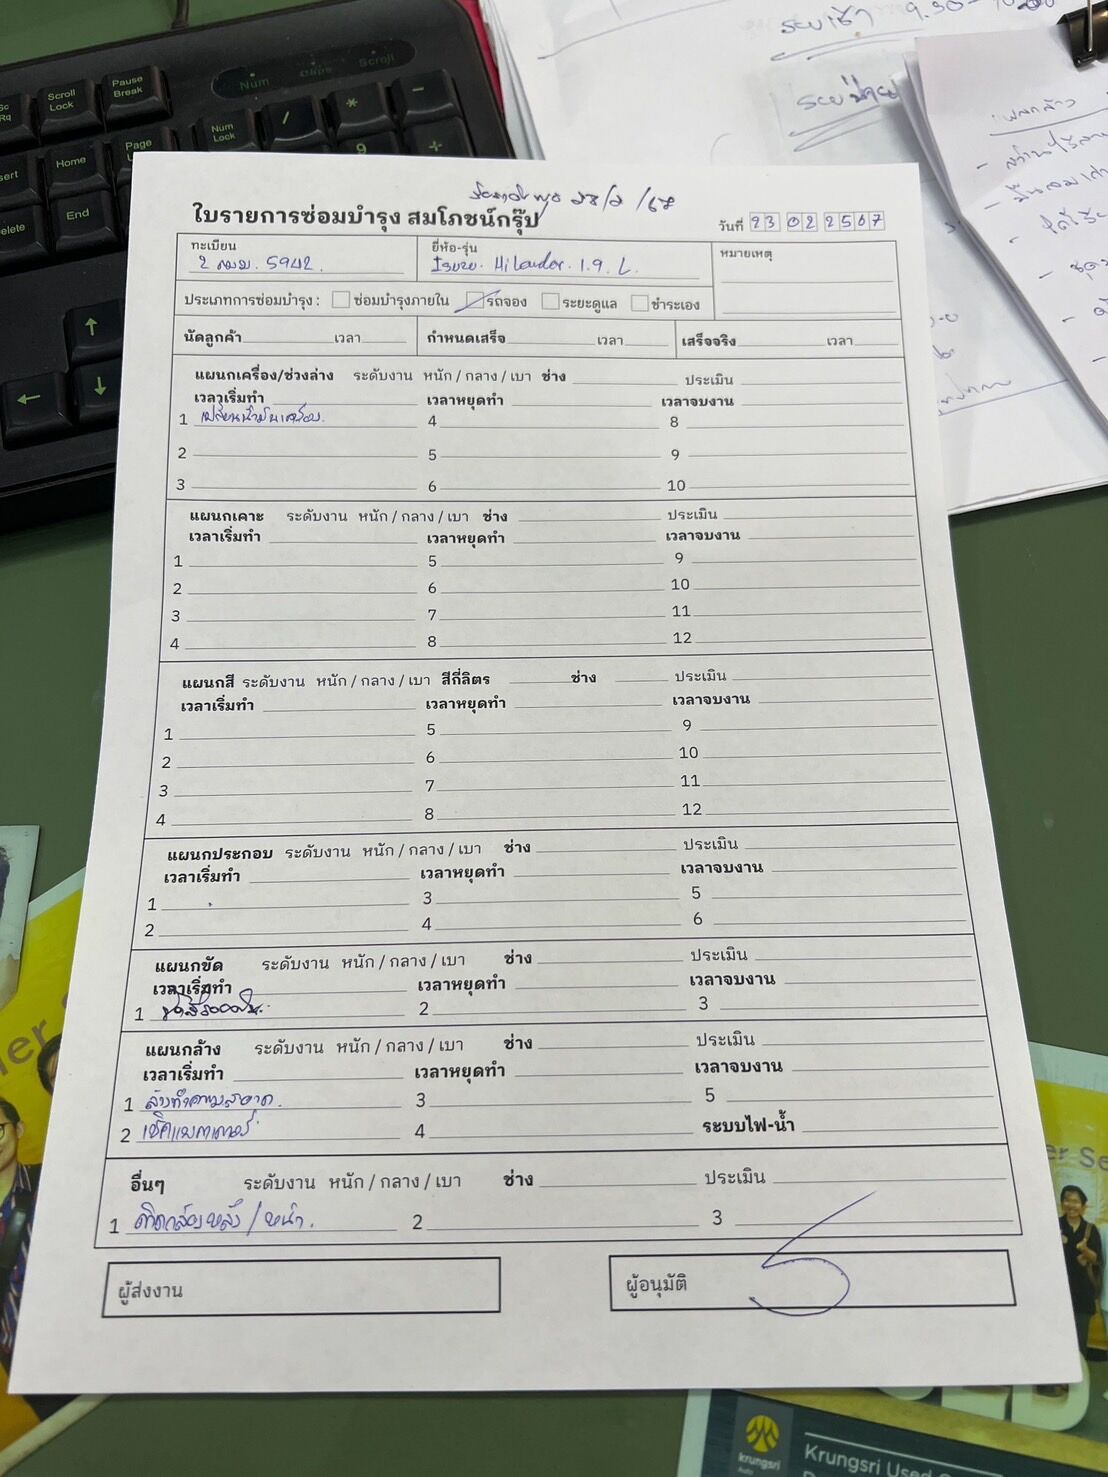 Pause
Break
Scroll
Lock
Num
Scroll
Num
Lock
Home
Page
End
ระบบเช้า 9.30 -
ใบรายการซ่อมบำรุง สมโภชน์กรุ๊ป
วันที่ 23 02 2567
ทะเบียน
5942
ยี่ห้อ-รุ่น
Isuzu. Hilander. 1.9. L.
หมายเหตุ
ประเภทการซ่อมบำรุง : ซ่อมบำรุงภายใน รถจอง ระยะดูแล ชำระเอง
นัดลูกค้า เวลา กำหนดเสร็จ เวลา เสร็จจริง เวลา
แผนกเครื่อง/ช่วงล่าง ระดับงาน หนัก / กลาง / เบา ช่าง ประเมิน
เวลาเริ่มทำ เวลาหยุดทำ เวลาจบงาน
1 เปลี่ยนน้ำมันเครื่อง. 4 8
2 5 9
3 6 10
แผนกเคาะ ระดับงาน หนัก / กลาง / เบา ช่าง ประเมิน
เวลาเริ่มทำ เวลาหยุดทำ เวลาจบงาน
1 5 9
2 6 10
3 7 11
4 8 12
แผนกสี ระดับงาน หนัก / กลาง / เบา สีกี่ลิตร ช่าง ประเมิน
เวลาเริ่มทำ เวลาหยุดทำ เวลาจบงาน
1 5 9
2 6 10
3 7 11
4 8 12
แผนกประกอบ ระดับงาน หนัก / กลาง / เบา ช่าง ประเมิน
เวลาเริ่มทำ เวลาหยุดทำ เวลาจบงาน
1 3 5
2 4 6
แผนกขัด ระดับงาน หนัก / กลาง / เบา ช่าง ประเมิน
เวลาเริ่มทำ เวลาหยุดทำ เวลาจบงาน
1 2 3
แผนกล้าง ระดับงาน หนัก / กลาง / เบา ช่าง ประเมิน
เวลาเริ่มทำ เวลาหยุดทำ เวลาจบงาน
1 ล้างทำความสะอาด. 3 5
2 เช็คแบตเตอรี่ 4 ระบบไฟ-น้ำ
อื่นๆ ระดับงาน หนัก / กลาง / เบา ช่าง ประเมิน
1 ติดกล้องหลัง / หน้า. 2 3
ผู้ส่งงาน
ผู้อนุมัติ
krungsri
Krungsri Used